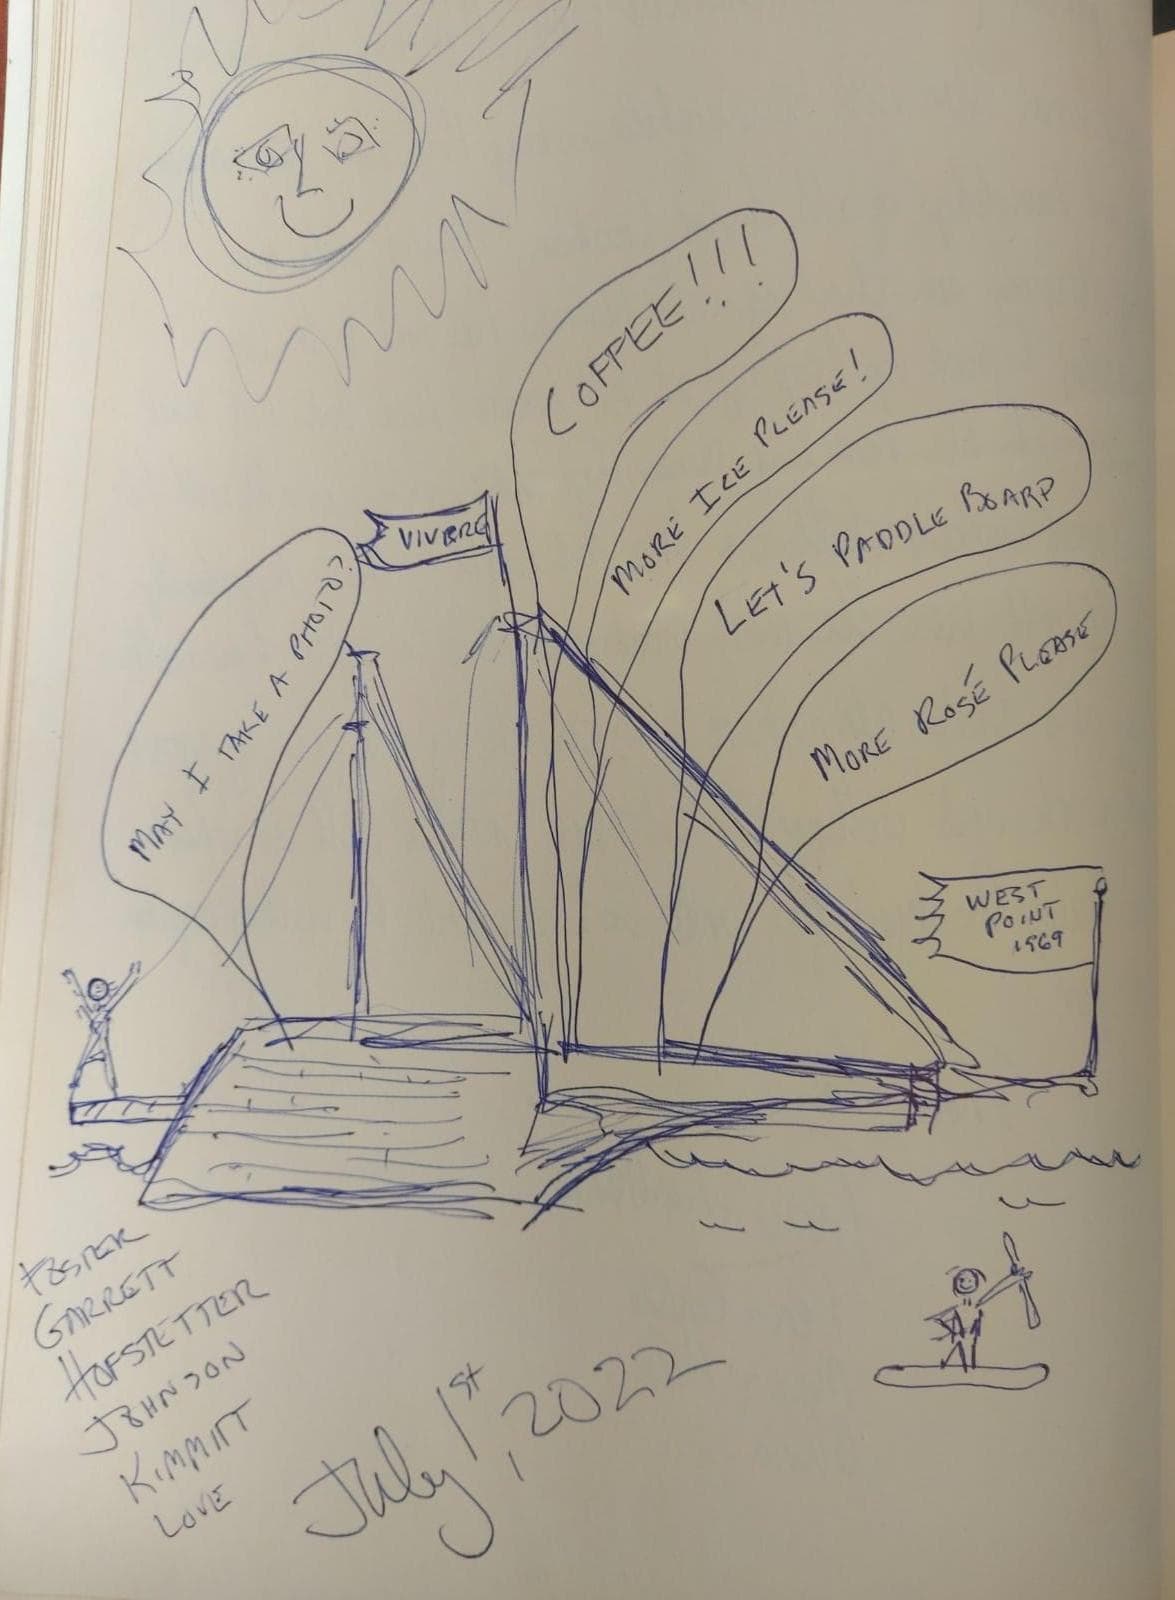 COFFEE!!!
MORE ICE PLEASE!
LET'S PADDLE BOARD
MORE ROSÉ PLEASE
VIVERE
MAY I TAKE A PHOTO?
WEST
POINT
1969
FOSTER
GARRETT
HOFSTETTER
JOHNSON
KIMMITT
LOVE
July 1st, 2022